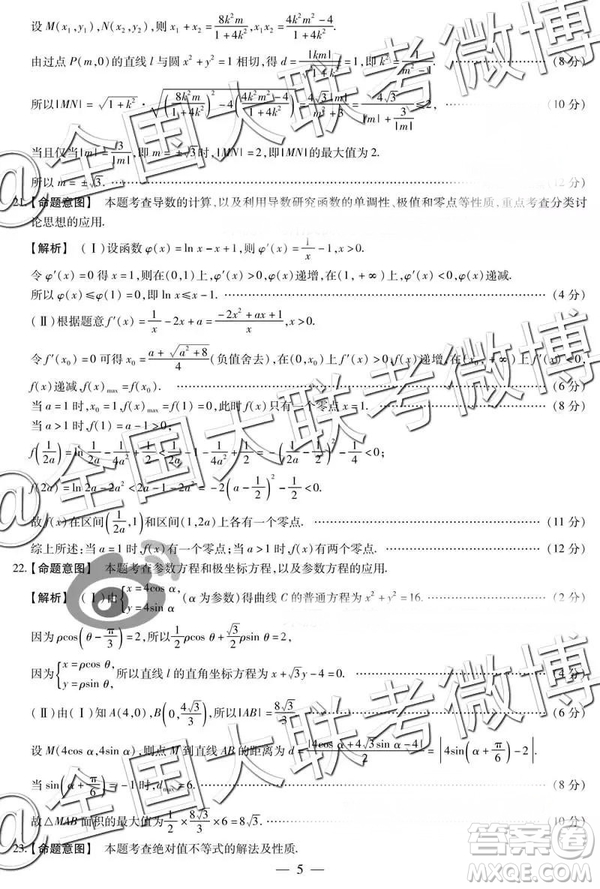 设 M(x₁,y₁),N(x₂,y₂),则 x₁+x₂=8k²m/(1+4k²),x₁x₂=(4k²m²-4)/(1+4k²).
由过点 P(m,0)的直线 l 与圆 x²+y²=1 相切,得 d=|km|/√(1+k²)=1,即 k²=1/(m²-1). (8 分)
所以|MN|=√(1+k²)·√((8k²m/(1+4k²))²-4(4k²m²-4)/(1+4k²))=4√3|m|/(m²+3)=4√3/(|m|+3/|m|)≤2, (10 分)
当且仅当|m|=3/|m|,即 m=±√3 时,|MN|=2,即|MN|的最大值为 2.
所以 m=±√3. (12 分)
21.【命题意图】 本题考查导数的计算,以及利用导数研究函数的单调性、极值和零点等性质,重点考查分类讨
论思想的应用.
【解析】 (Ⅰ)设函数 φ(x)=ln x-x+1,则 φ′(x)=1/x-1.
令 φ′(x)=0 得 x=1,则在(0,1)上,φ′(x)>0,φ(x)递增,在(1,+∞)上,φ′(x)<0,φ(x)递减.
所以 φ(x)≤φ(1)=0,即 ln x≤x-1. (4 分)
(Ⅱ)根据题意 f′(x)=1/x-2x+a=(-2x²+ax+1)/x,x>0.
令 f′(x₀)=0 可得 x₀=(a+√(a²+8))/4(负值舍去),在(0,x₀)上,f′(x)>0,f(x)递增,在(x₀,+∞)上,f′(x)<0,
f(x)递减,f(x)max=f(x₀). (6 分)
当 a=1 时,x₀=1,f(x)max=f(1)=0,此时 f(x)只有一个零点. (8 分)
当 a>1 时,f(1)=a-1>0,
f(1/2a)=ln 1/2a-1/4a²+1/2<1/2a-1-1/4a²+1/2=-(1/2a-1/2)²-1/4<0;
f(2a)=ln 2a-2a²<2a-1-2a²=-2(a-1/2)²-1/2<0;
故 f(x)在区间(1/2a,1)和区间(1,2a)上各有一个零点. (11 分)
综上所述:当 a=1 时,f(x)有一个零点;当 a>1 时,f(x)有两个零点. (12 分)
22.【命题意图】 本题考查参数方程和极坐标方程,以及参数方程的应用.
【解析】 (Ⅰ)由{x=4cos α, y=4sin α(α 为参数)得曲线 C 的普通方程为 x²+y²=16. (2 分)
因为 ρcos(θ-π/3)=2,所以 1/2ρcos θ+√3/2ρsin θ=2,
因为{x=ρcos θ, y=ρsin θ,所以直线 l 的直角坐标方程为 x+√3y-4=0. (4 分)
(Ⅱ)由(Ⅰ)知 A(4,0),B(0,4√3/3),所以|AB|=8√3/3.
设 M(4cos α,4sin α),则点 M 到直线 AB 的距离为 d=|4cos α+4√3sin α-4|/2=|4sin(α+π/6)-2|.
当 sin(α+π/6)=-1 时,dmax=6. (8 分)
故△MAB 面积的最大值为 1/2×8√3/3×6=8√3.
23.【命题意图】 本题考查绝对值不等式的解法及性质.
— 5 —
@全国大联考微博
@全国大联考微博
@全国大联考微博
答案圈